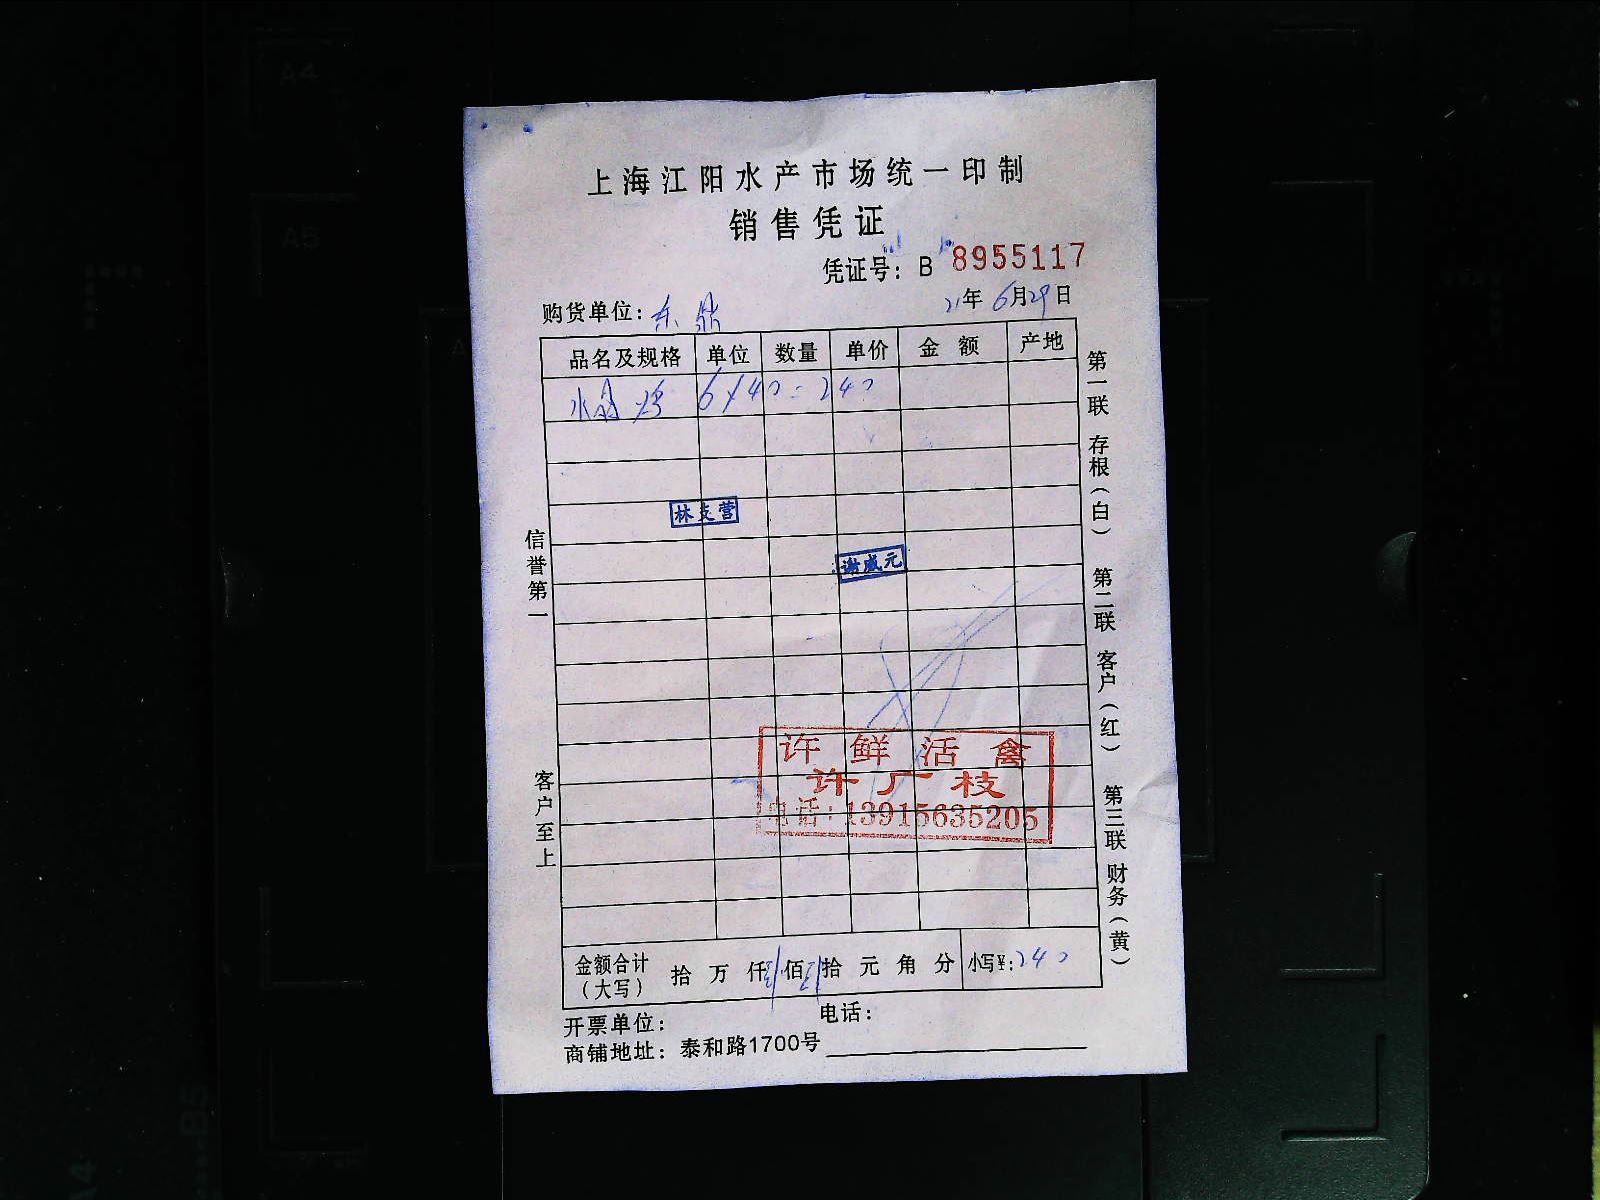 上海江阳水产市场统一印制
销售凭证
凭证号：B 8955117
购货单位：东 21年6月29日
品名及规格 单位 数量 单价 金额 产地
水晶 6×40=240
林支营
谢咸元
许鲜活禽
许广枝
电话：13915635205
金额合计（大写） 拾 万 仟 佰 拾 元 角 分 小写¥：240
开票单位： 电话：
商铺地址：泰和路1700号
信誉第一
客户至上
第一联 存根（白） 第二联 客户（红） 第三联 财务（黄）
A4
A5
B5
A4